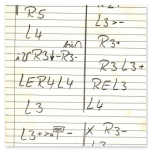 R5
L4
R3+-R3-
LER4L4
L3
L3+
L3>-
R3+
R3L3+
REL3
L4
X R3-
L3